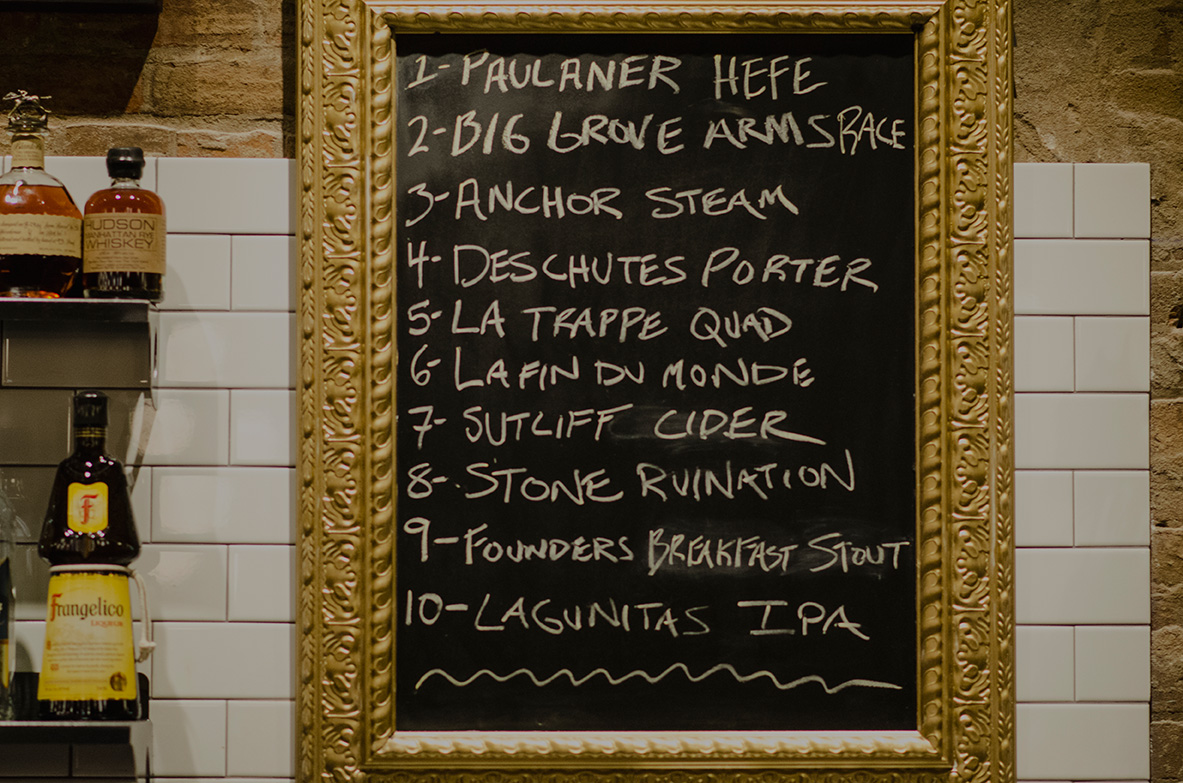 1-PAULANER HEFE
2-BIG GROVE ARMS RACE
3-ANCHOR STEAM
4-DESCHUTES PORTER
5-LA TRAPPE QUAD
6-LA FIN DU MONDE
7-SUTLIFF CIDER
8-STONE RUINATION
9-FOUNDERS BREAKFAST STOUT
10-LAGUNITAS IPA
HUDSON
MANHATTAN RYE
WHISKEY
F
Frangelico
LIQUEUR